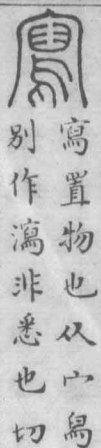 寫
寫置物也从宀舄
別作瀉非悉也切